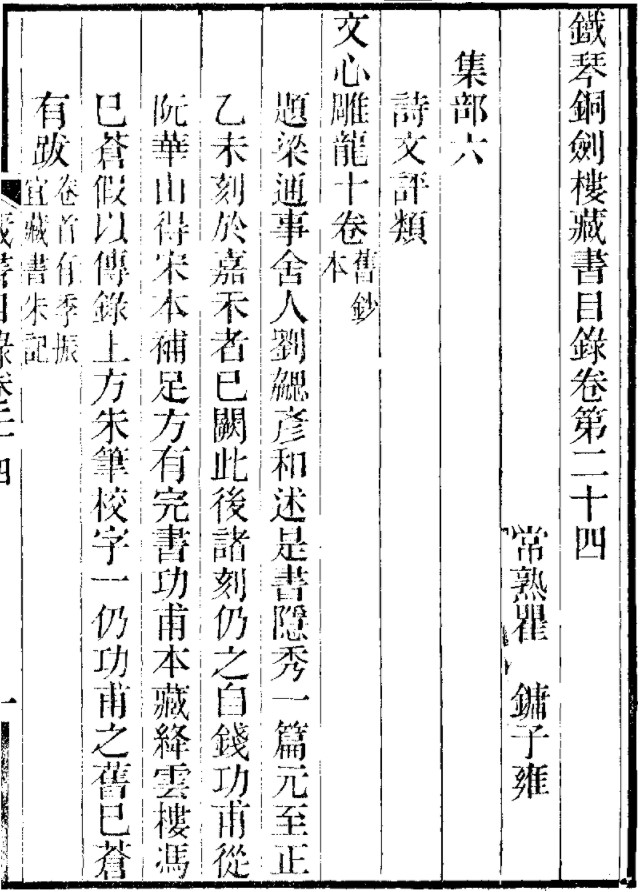 鐵琴銅劍樓藏書目錄卷第二十四
常熟瞿 鏞子雍
集部六
詩文評類
文心雕龍十卷舊鈔本
題梁通事舍人劉勰彥和述是書隱秀一篇元至正
乙未刻於嘉禾者已闕此後諸刻仍之自錢功甫從
阮華山得宋本補足方有完書功甫本藏絳雲樓馮
巳蒼假以傳錄上方朱筆校字一仍功甫之舊巳蒼
有跋卷首有季振宜藏書朱記
藏書目錄卷二十四
一